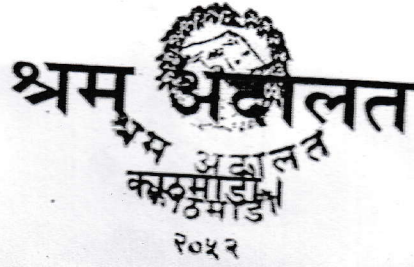 श्रम अदालत
श्रम अदालत
काठमाडौं
काठमाडौं
२०५२